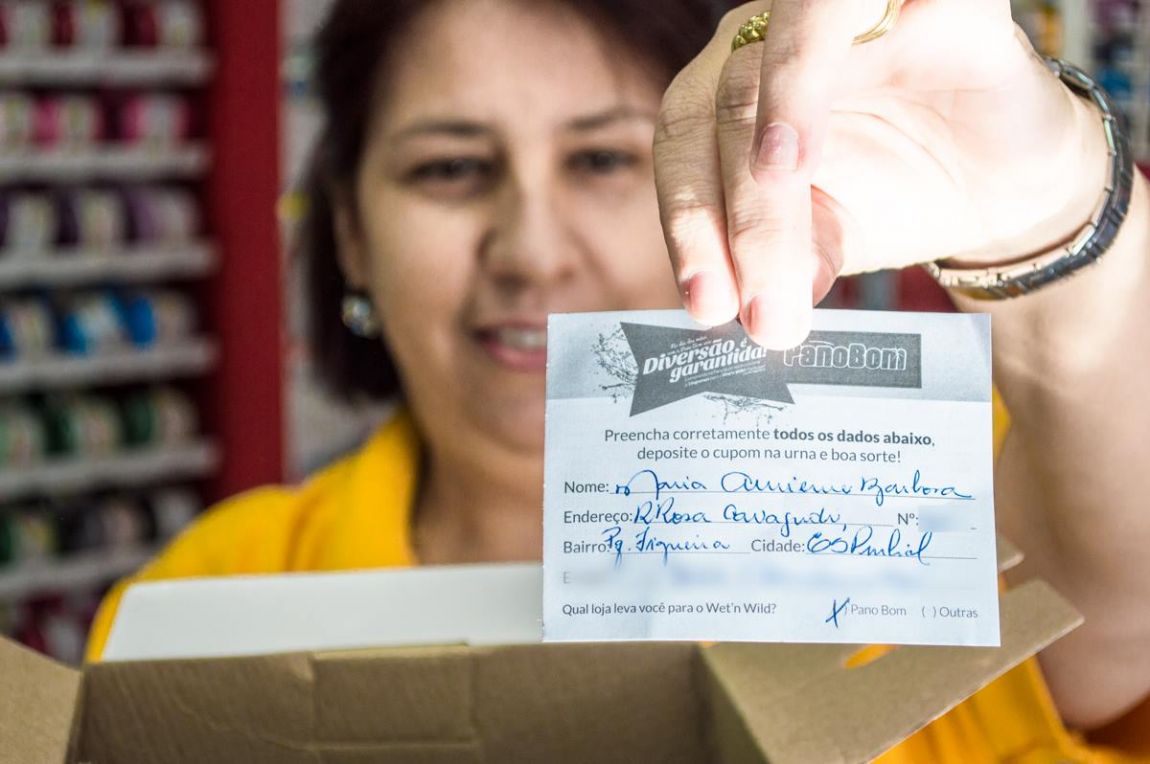 Diversão é
garantida!
PanoBom
Preencha corretamente todos os dados abaixo,
deposite o cupom na urna e boa sorte!
Nome: Maria Barbosa
Endereço: R Rosa Nº:
Bairro: Pq. Figueira Cidade: ES Pinhal
E
Qual loja leva você para o Wet'n Wild? (X) Pano Bom ( ) Outras